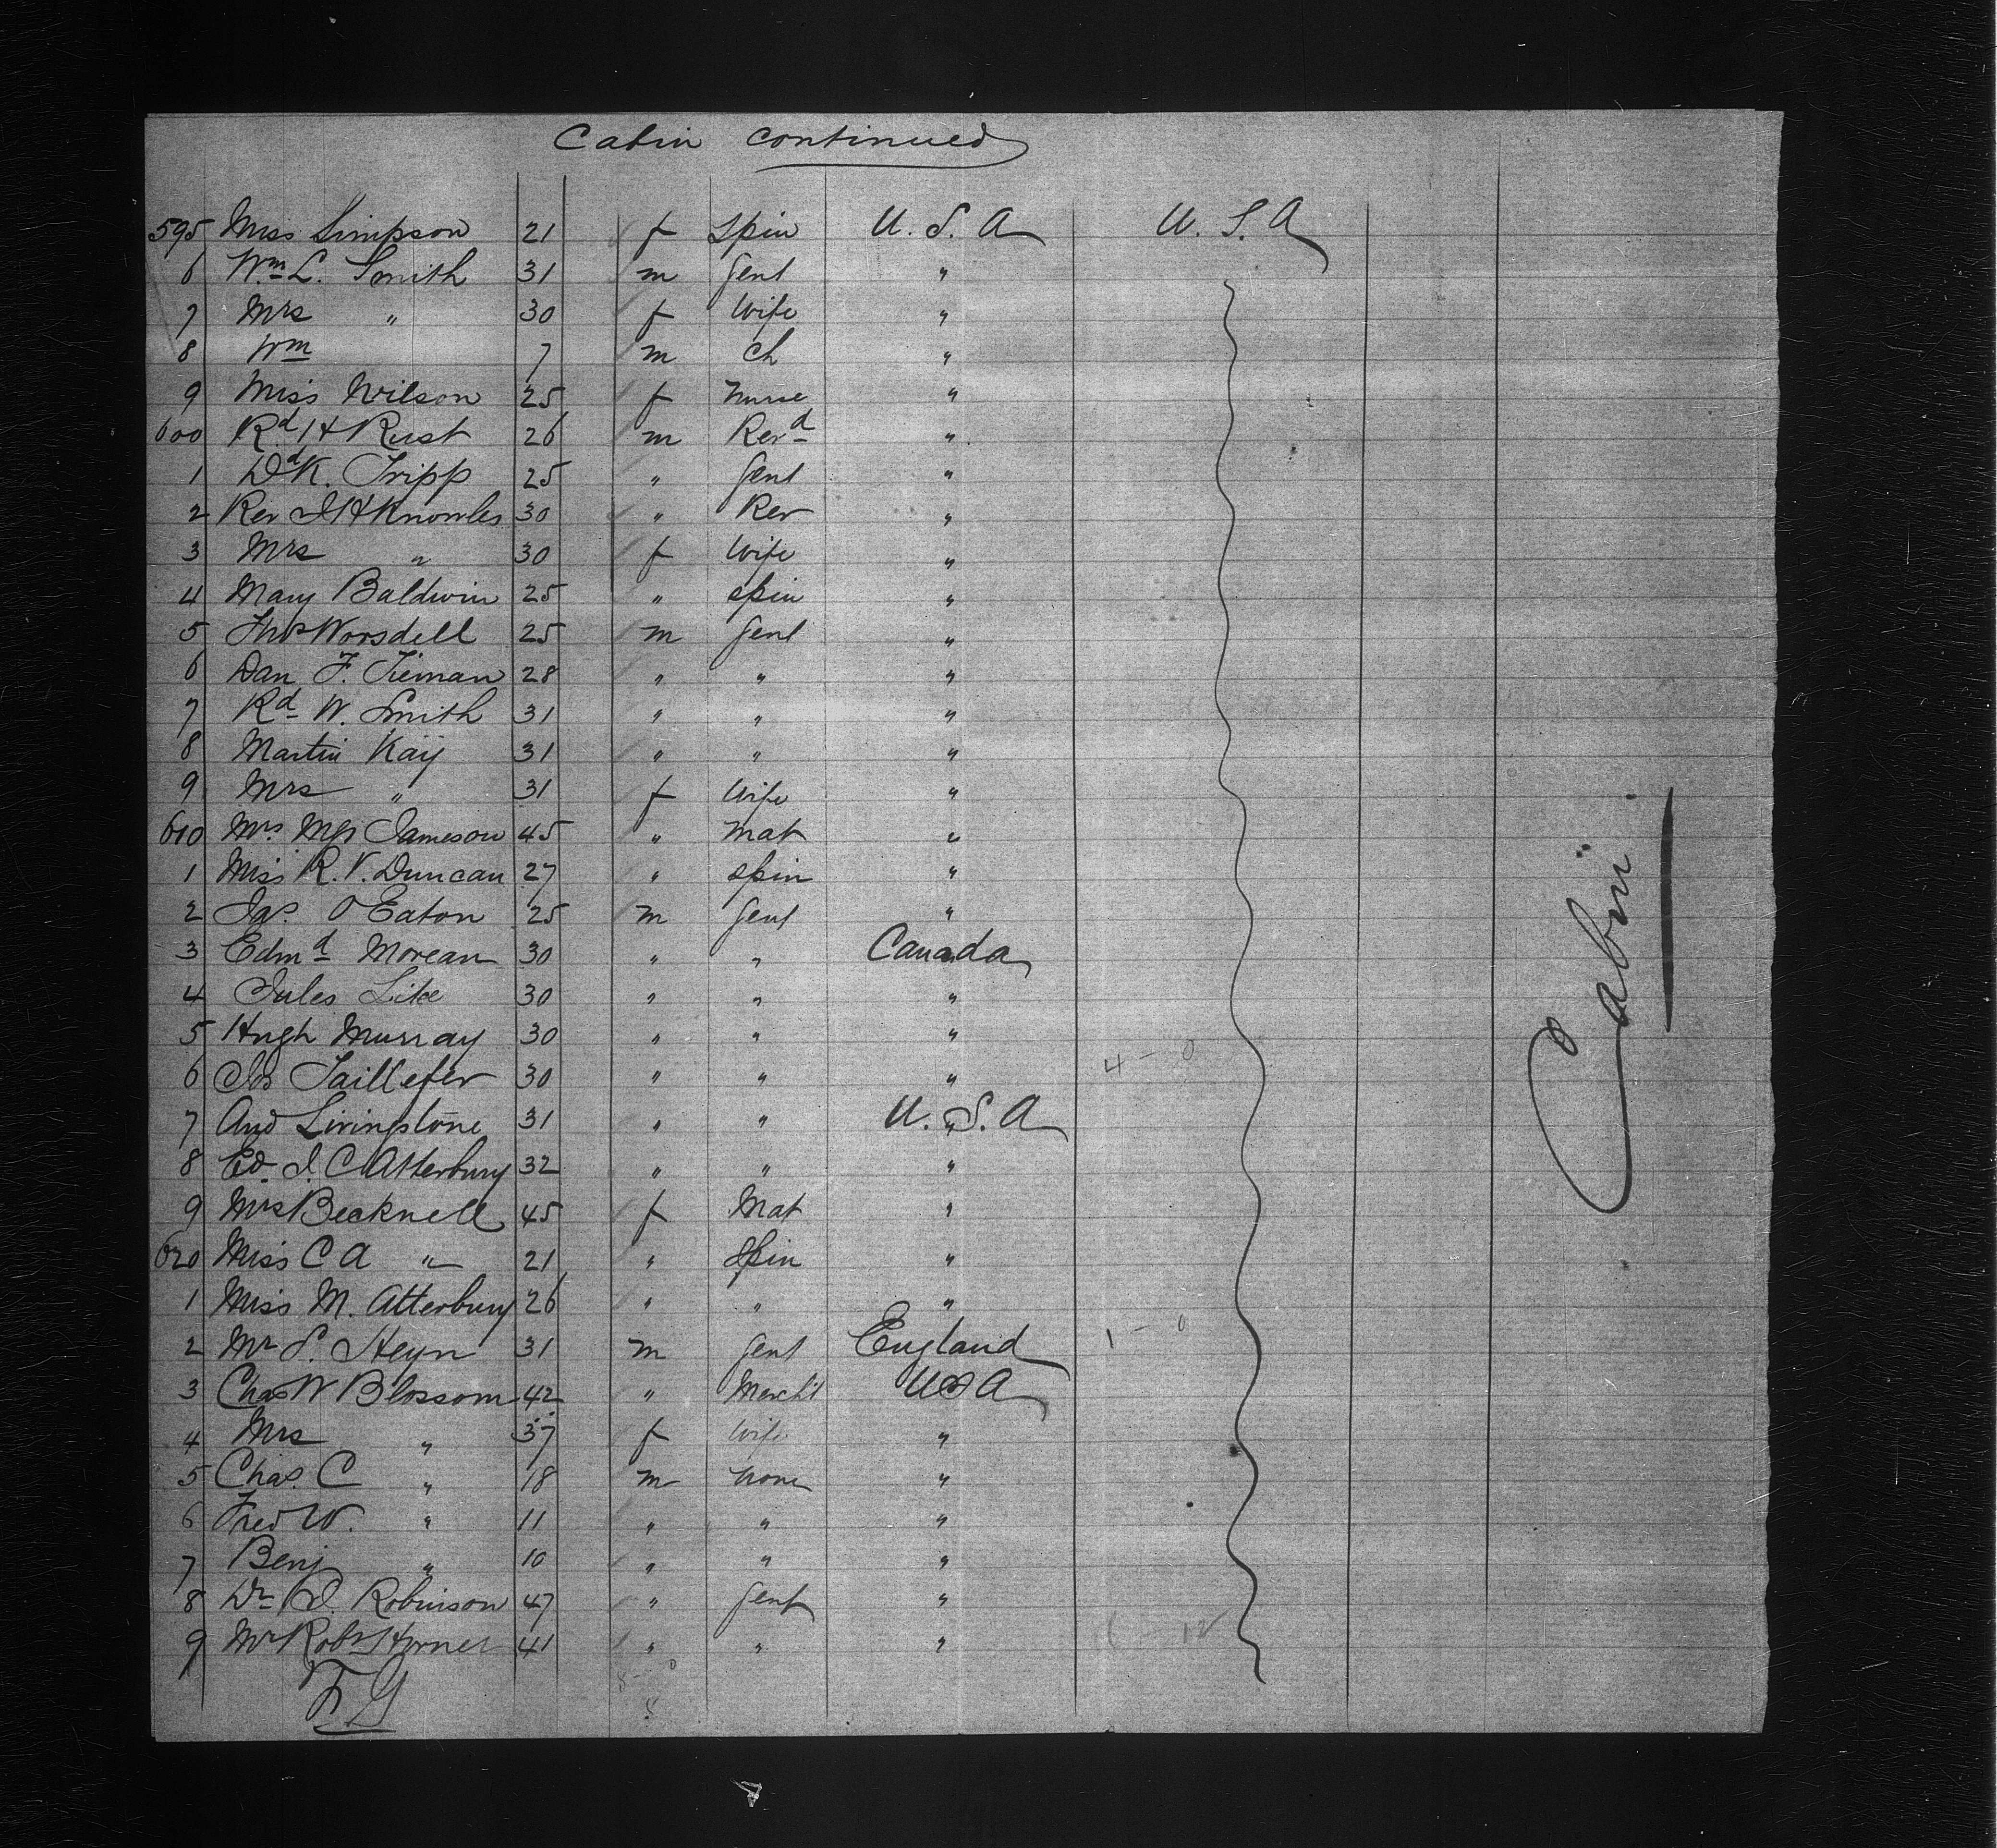 Cabin continued
595 Miss Simpson 21 f Spin U.S.A U.S.A
6 Wm L. Smith 31 m Gent "
7 Mrs " 30 f Wife "
8 Wm 7 m ch "
9 Miss Wilson 25 f Nurse "
600 Rd H Rust 26 m Revd "
1 Dd K. Tripp 25 " Gent "
2 Rev J H Knowles 30 " Rev "
3 Mrs " 30 f Wife "
4 Mary Baldwin 25 " spin "
5 Thos Worsdell 25 m Gent "
6 Dan F. Tieman 28 " " "
7 Rd W. Smith 31 " " "
8 Martin Kay 31 " " "
9 Mrs " 31 f Wife "
610 Mrs Jameson 45 " Mat "
1 Miss R. V. Duncan 27 " spin "
2 Jas. O Eaton 25 m Gent "
3 Edmd Morean 30 " " Canada
4 Jules 30 " " "
5 Hugh Murray 30 " " "
6 Jos Taillefer 30 " " " 4 - 0
7 And Livingstone 31 " " U.S.A
8 Ed. J. C Atterbury 32 " " "
9 Mrs Becknell 45 f Mat "
620 Miss C A " 21 " Spin "
1 Miss M. Atterbury 26 " " "
2 Mr S. Heyn 31 m Gent England 1 - 0
3 Chas W Blossom 42 " Mercht U S A
4 Mrs " 37 f Wife "
5 Chas. C " 18 m None "
6 Fred W. " 11 " " "
7 Benj " 10 " " "
8 Dr J. Robinson 47 " Gent "
9 Mr Robt Horner 41 " " "
Cabin